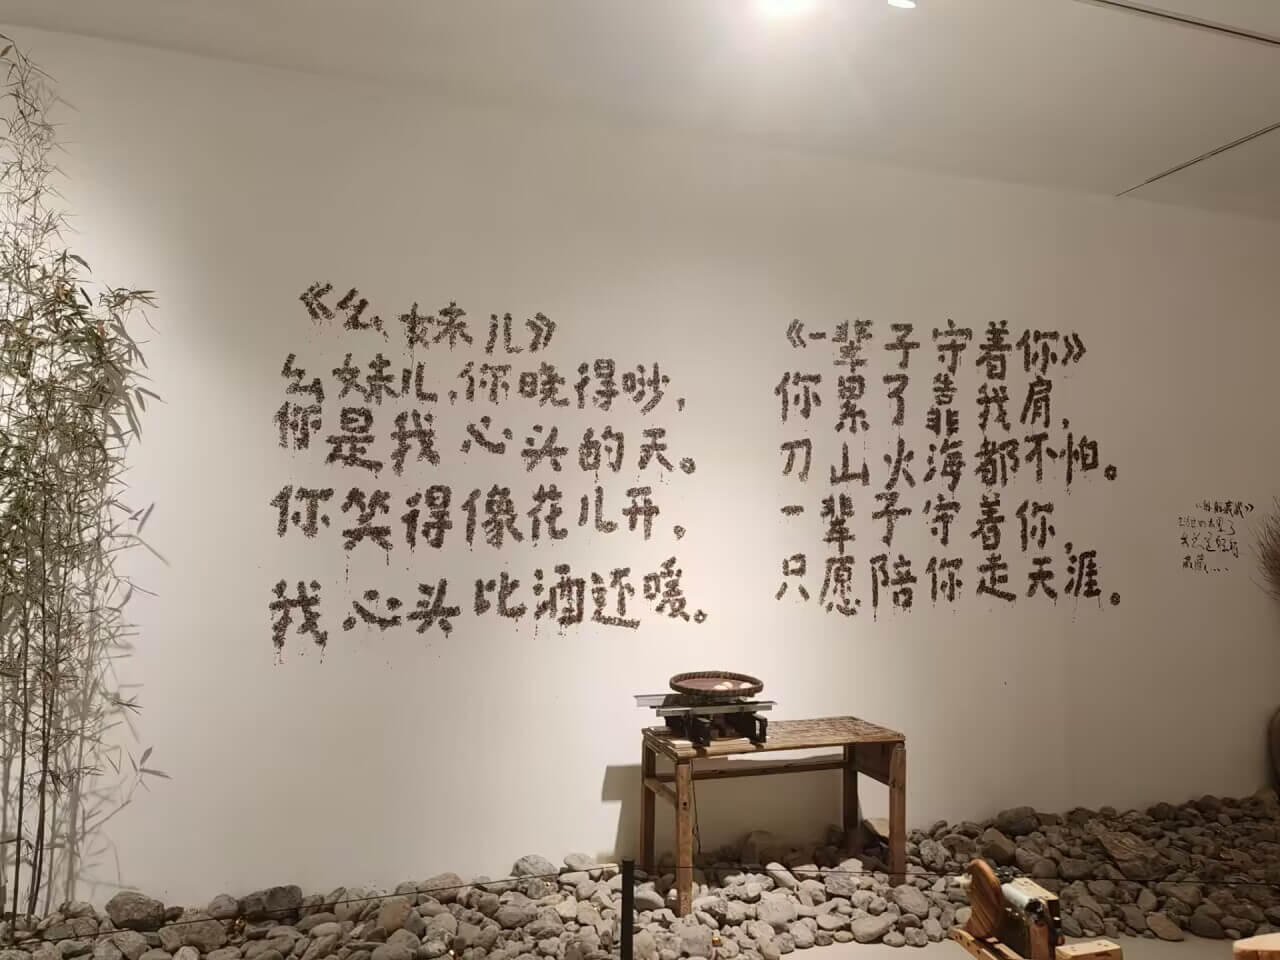 《幺妹儿》
幺妹儿,你晓得吵,
你是我心头的天。
你笑得像花儿开,
我心头比酒还暖。
《一辈子守着你》
你累了靠我肩,
刀山火海都不怕。
一辈子守着你,
只愿陪你走天涯。